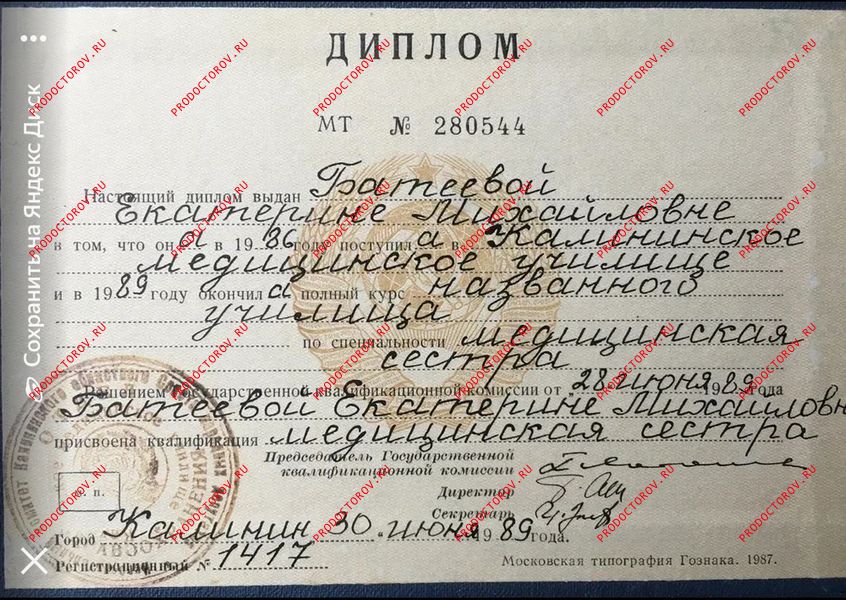 ДИПЛОМ
МТ № 280544
Настоящий диплом выдан Батеевой
Екатерине Михайловне
в том, что он а в 1986 года поступил а в Калининское
медицинское училище
и в 1989 году окончил а полный курс названного
училища
по специальности медицинская
сестра
Решением Государственной квалификационной комиссии от "28 июня 1989 года
Батеевой Екатерине Михайловне
присвоена квалификация медицинская сестра
Председатель Государственной
квалификационной комиссии
Директор
Секретарь
М. П.
Город Калинин 30 июня 1989 года.
Регистрационный № 1417
Московская типография Гознака. 1987.
Сохранить на Яндекс Диск
PRODOCTOROV.RU